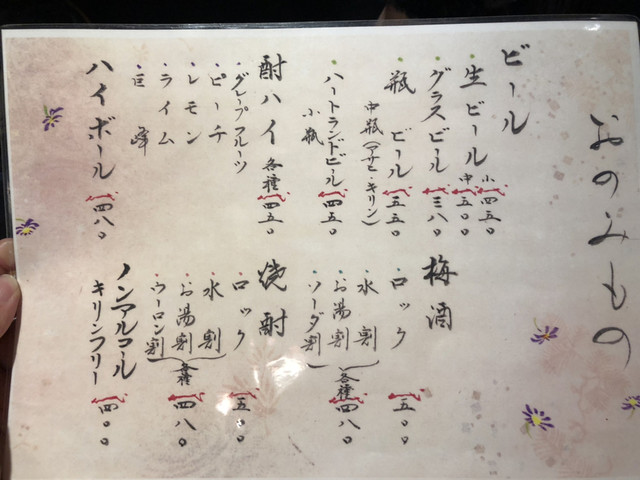 おのみもの
ビール
・生ビール 小 四五〇
中 五〇〇
・グラスビール 三八〇
・瓶ビール 五五〇
中瓶(アサヒ・キリン)
・ハートランドビール 四五〇
小瓶
酎ハイ 各種 四五〇
・グレープフルーツ
・ピーチ
・レモン
・ライム
・巨峰
ハイボール 四八〇
梅酒
・ロック 五〇〇
・水割
・お湯割
・ソーダ割
各種 四八〇
焼酎
・ロック 五〇〇
・水割
・お湯割
・ウーロン割
各種 四八〇
ノンアルコール
キリンフリー 四〇〇